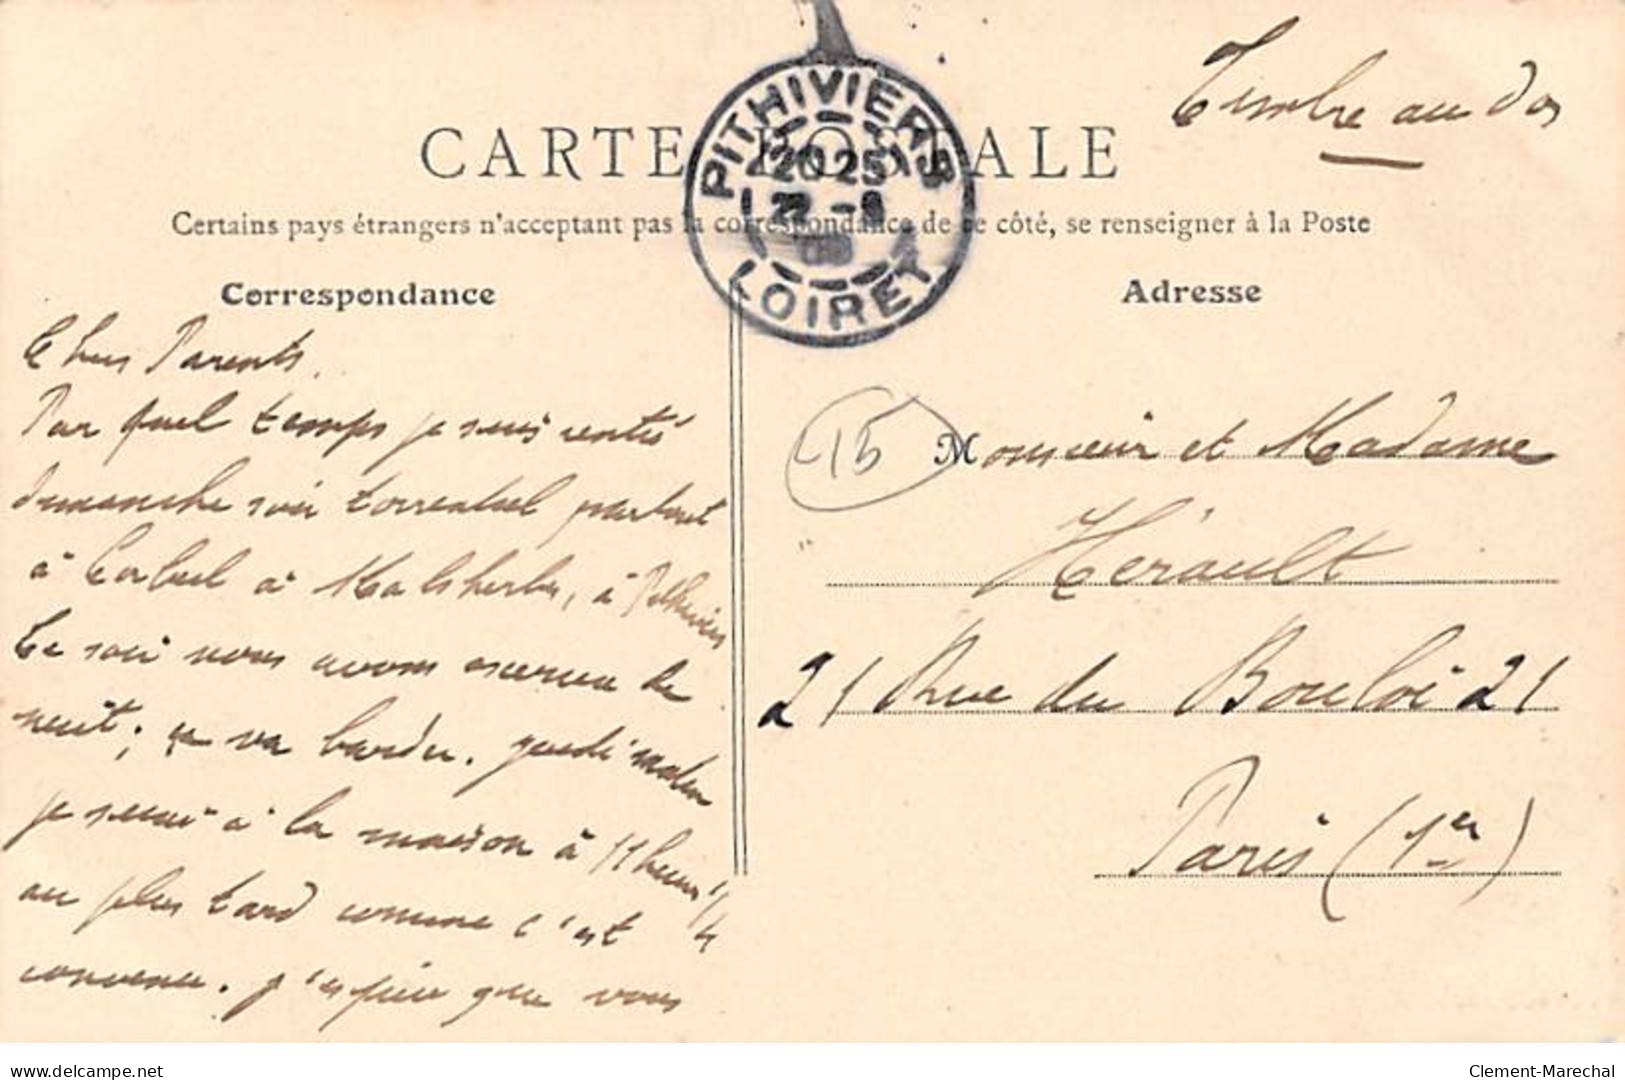 Timbre au dos
CARTE POSTALE
PITHIVIERS
20 25
LOIRET
Certains pays étrangers n'acceptent pas la correspondance de ce côté, se renseigner à la Poste
Correspondance
Adresse
Chers Parents.
Par quel temps je suis rentré
dimanche soir torrentiel partout
à Corbeil à Malsherbes, à Pithiviers
Ce soir nous avons exercice de
nuit; ça va barder. jeudi matin
je serai à la maison à 11 heures 1/4
au plus tard comme c'est
convenu. j'espère que vous
15
Monsieur et Madame
Hérault
21 Rue du Bouloi 21
Paris (1er)
delcampe.net
Clement-Marechal